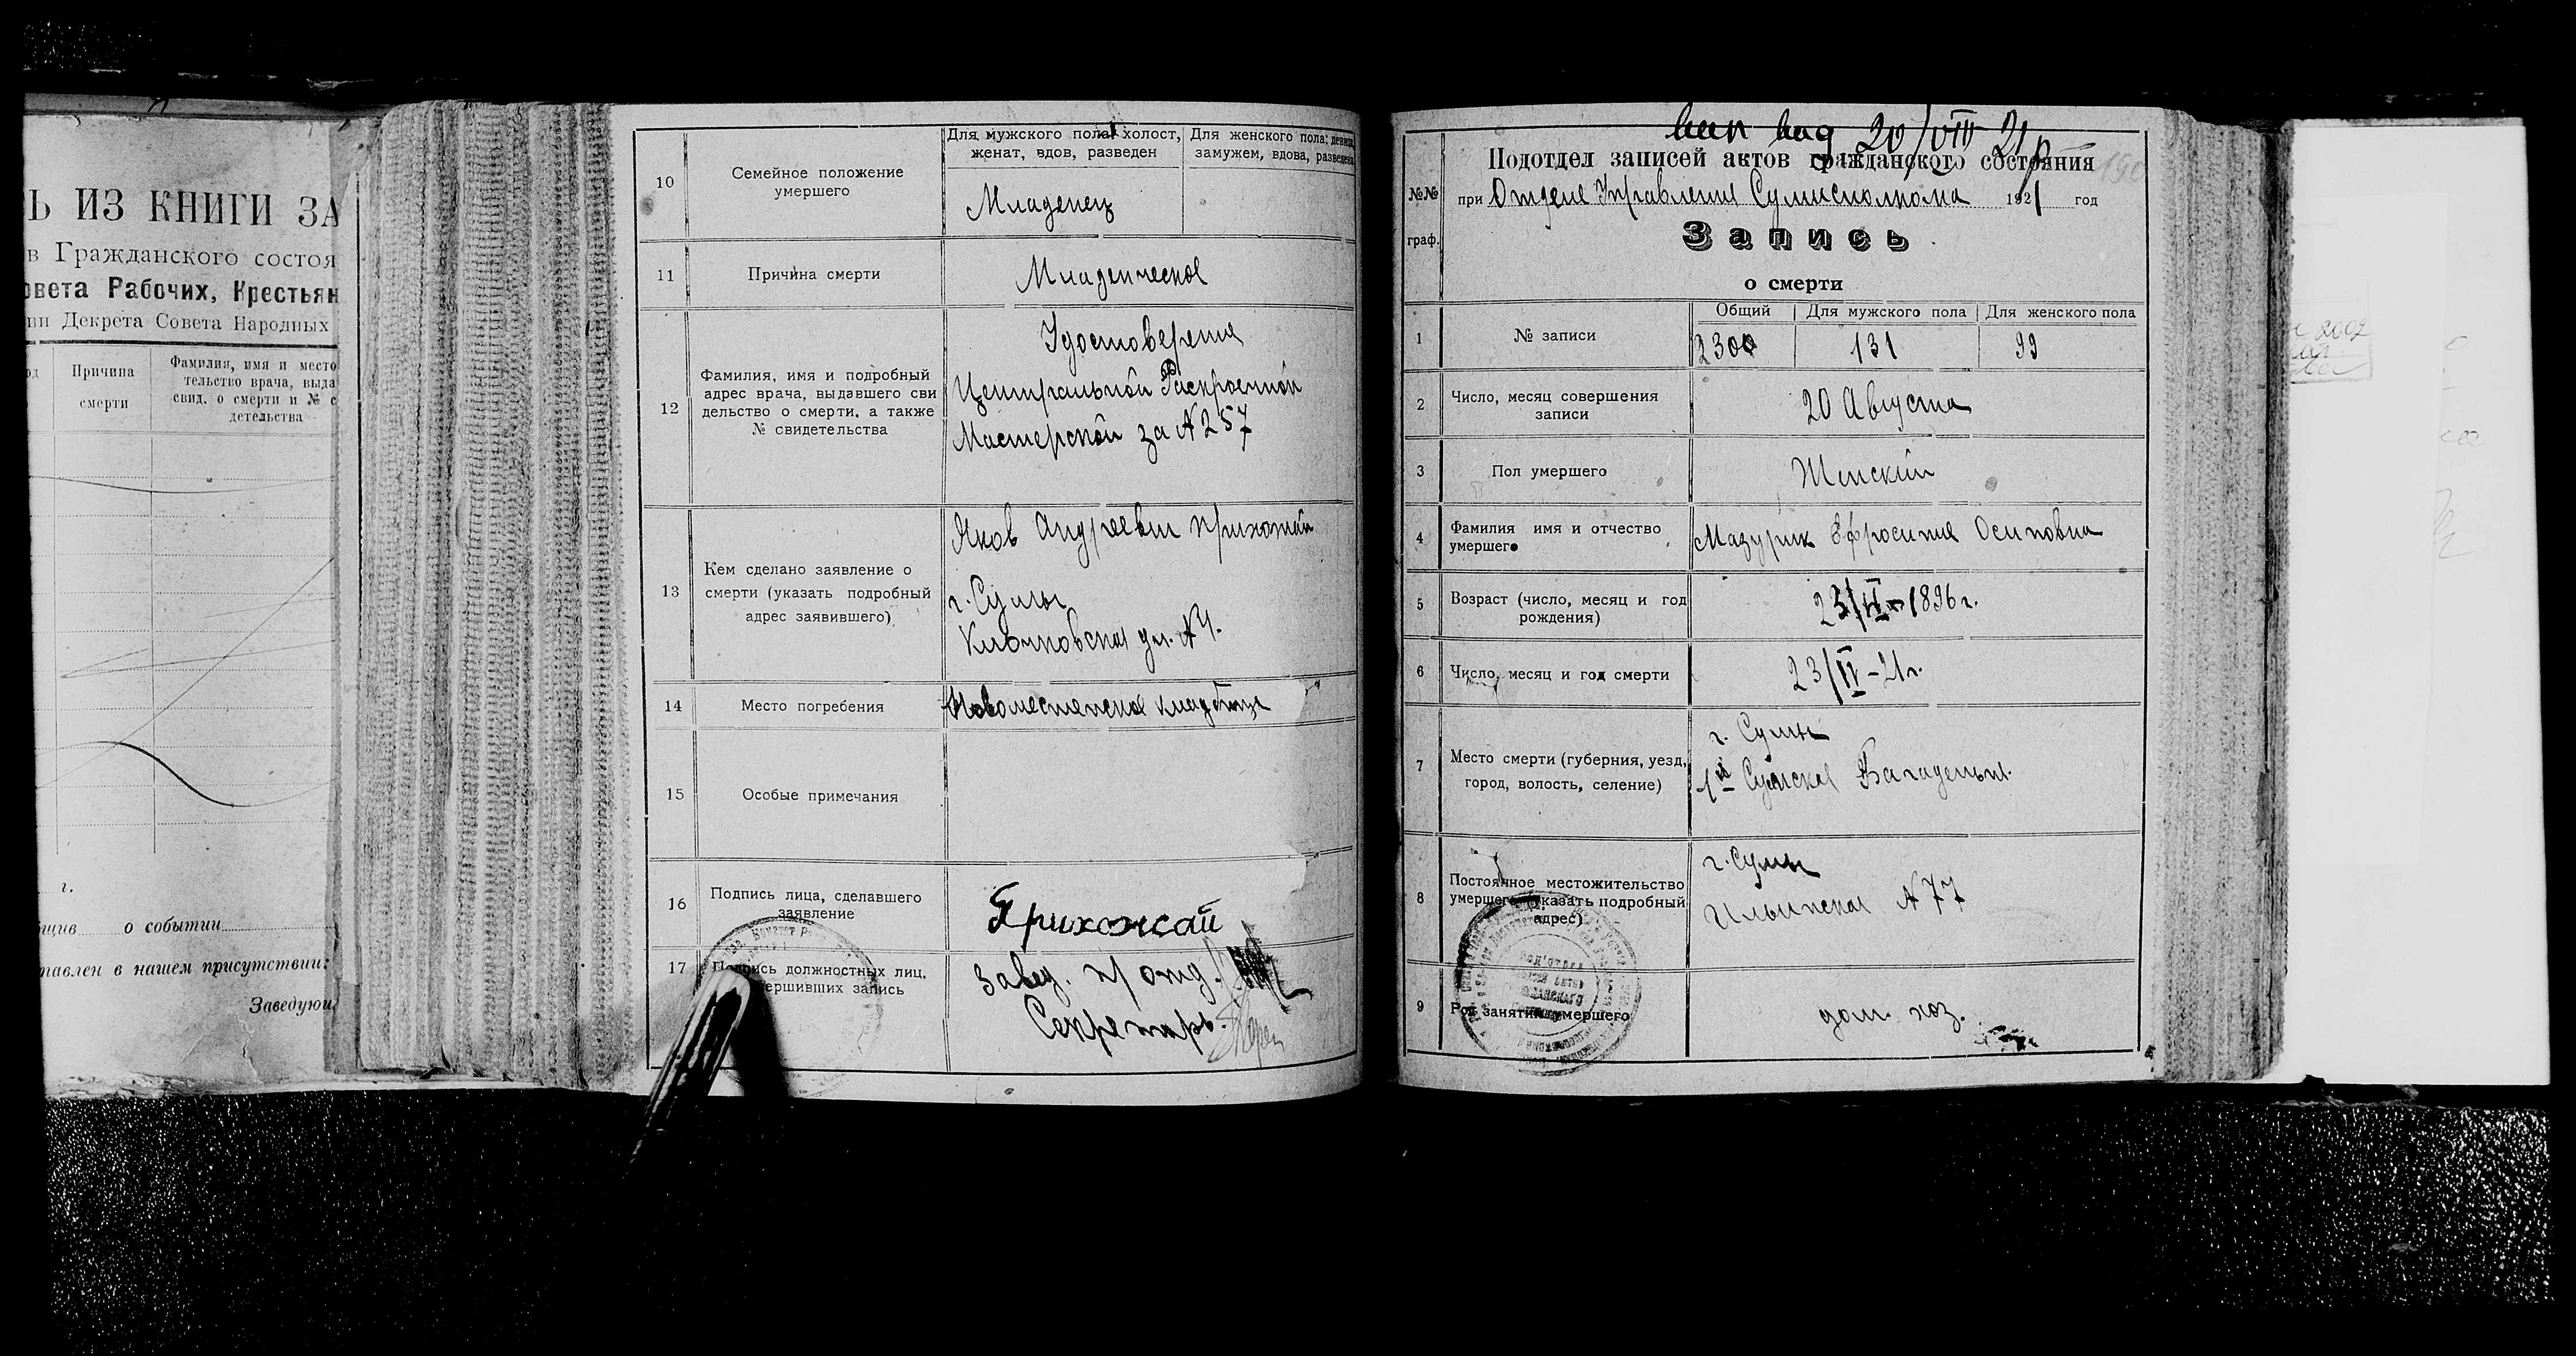 Ь ИЗ КНИГИ ЗА
в Гражданского состоя
овета Рабочих, Крестьян
ии Декрета Совета Народных
Причина смерти
Фамилия, имя и место
тельство врача, выда
свид. о смерти и № с
детельства
г.
о событии
тавлен в нашем присутствии:
Заведующ
10
Семейное положение умершего
Для мужского пола: холост, женат, вдов, разведен
Для женского пола: девица, замужем, вдова, разведена
Младенец
11
Причина смерти
Младенческая
12
Фамилия, имя и подробный
адрес врача, выдавшего сви
дельство о смерти, а также
№ свидетельства
Удостоверения
Центральной Раскроечной
Мастерской за № 257
13
Кем сделано заявление о
смерти (указать подробный
адрес заявившего)
Яков Андреевич Прихожай
г. Сумы
ул. №
14
Место погребения
Новоместенское кладбище
15
Особые примечания
16
Подпись лица, сделавшего
заявление
Прихожай
17
Подпись должностных лиц,
вершивших запись
Завед. п/отд.
Секретарь
20/VIII 21
Подотдел записей актов гражданского состояния
№№
при Отделе Управления Сумисполкома 1921 год
граф.
Запись
о смерти
1
№ записи
Общий
Для мужского пола
Для женского пола
2300
131
99
2
Число, месяц совершения
записи
20 Августа
3
Пол умершего
Женский
4
Фамилия имя и отчество
умершего
Мазурик Ефросиния Осиповна
5
Возраст (число, месяц и год
рождения)
1896 г.
6
Число, месяц и год смерти
23/IV-21г.
7
Место смерти (губерния, уезд,
город, волость, селение)
г. Сумы
1ая Сумская Багадельня.
8
Постоянное местожительство
умершего (указать подробный
адрес)
г. Сумы
Ильинская № 77
9
Род занятий умершего
дом. хоз.